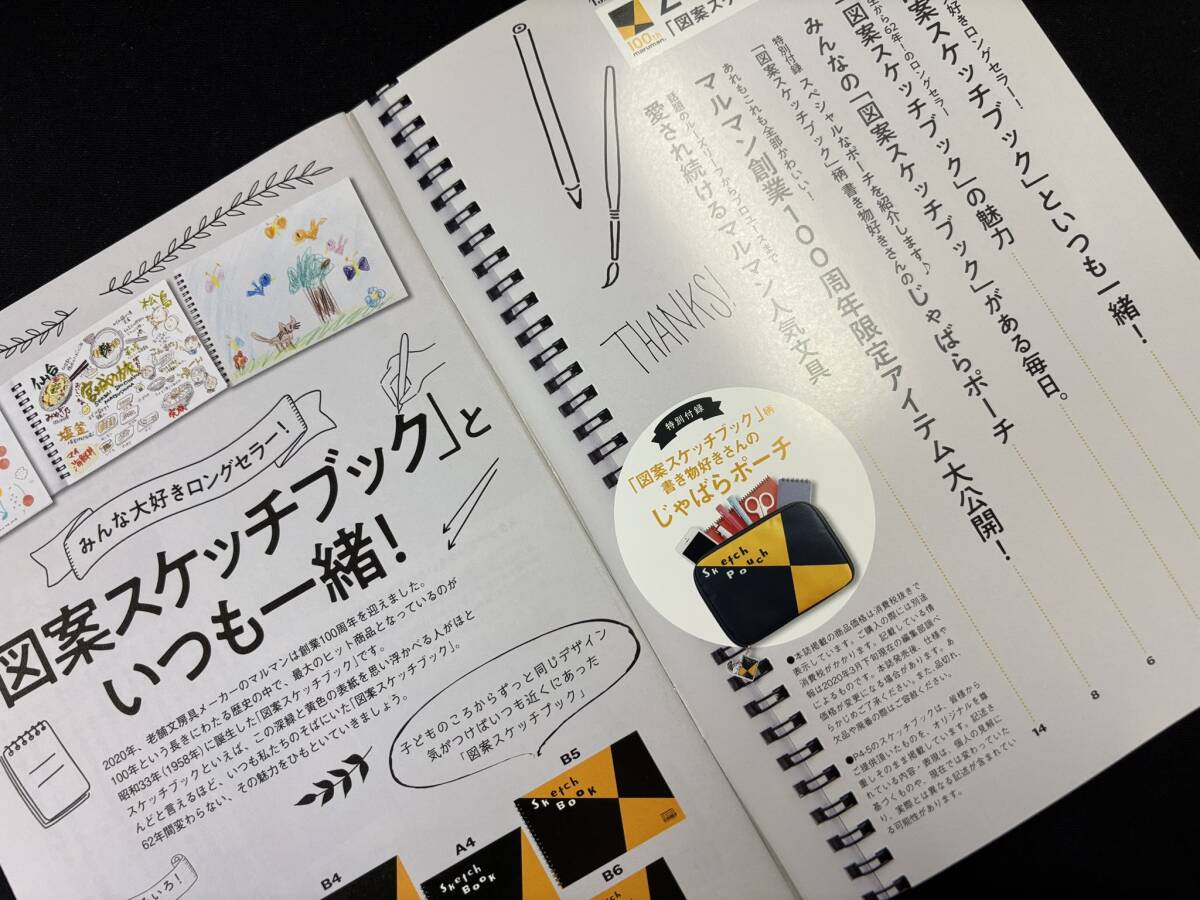 みんな大好きロングセラー！
図案スケッチブック」と
いつも一緒！
2020年、老舗文房具メーカーのマルマンは創業100周年を迎えました。
100年という長きにわたる歴史の中で、最大のヒット商品となっているのが
昭和33年(1958年)に誕生した「図案スケッチブック」です。
スケッチブックといえば、この深緑と黄色の表紙を思い浮かべる人がほと
んどと言えるほど、いつも私たちのそばにいた「図案スケッチブック」。
62年間変わらない、その魅力をひもといていきましょう。
子どものころからずっと同じデザイン
気がつけばいつも近くにあった
「図案スケッチブック」
B5
Sketch
Book
A4
Sketch
Book
B6
B4
いろ！
仙台
松島
塩釜
100th
maruman.
「図案スケッ
好きロングセラー！
案スケッチブック」といつも一緒！
生から62年！のロングセラー
図案スケッチブック」の魅力
みんなの「図案スケッチブック」がある毎日。
6
特別付録 スペシャルなポーチを紹介します♪
「図案スケッチブック」柄 書き物好きさんのじゃばらポーチ
8
あれもこれも全部かわいい！
マルマン創業100周年限定アイテム大公開！
14
話題のルーズリーフからプロユースまで
愛され続けるマルマン人気文具
THANKS!
特別付録
「図案スケッチブック」柄
書き物好きさんの
じゃばらポーチ
Sketch
Pouch
●本誌掲載の商品価格は消費税抜きで
表示しています。ご購入の際には別途
消費税がかかります。記載している情
報は2020年3月下旬現在の編集部調べ
によるものです。本誌発売後、仕様や
価格が変更になる場合があります。あ
らかじめご了承ください。また、品切れ、
欠品や廃番の際はご容赦ください。
●P4-5のスケッチブックは、皆様から
ご提供頂いたものを、オリジナルを尊
重しそのまま掲載しています。記述さ
れている内容・表現は、個人の見解に
基づくものや、現在では変わっていた
り、実際とは異なる記述が含まれてい
る可能性があります。